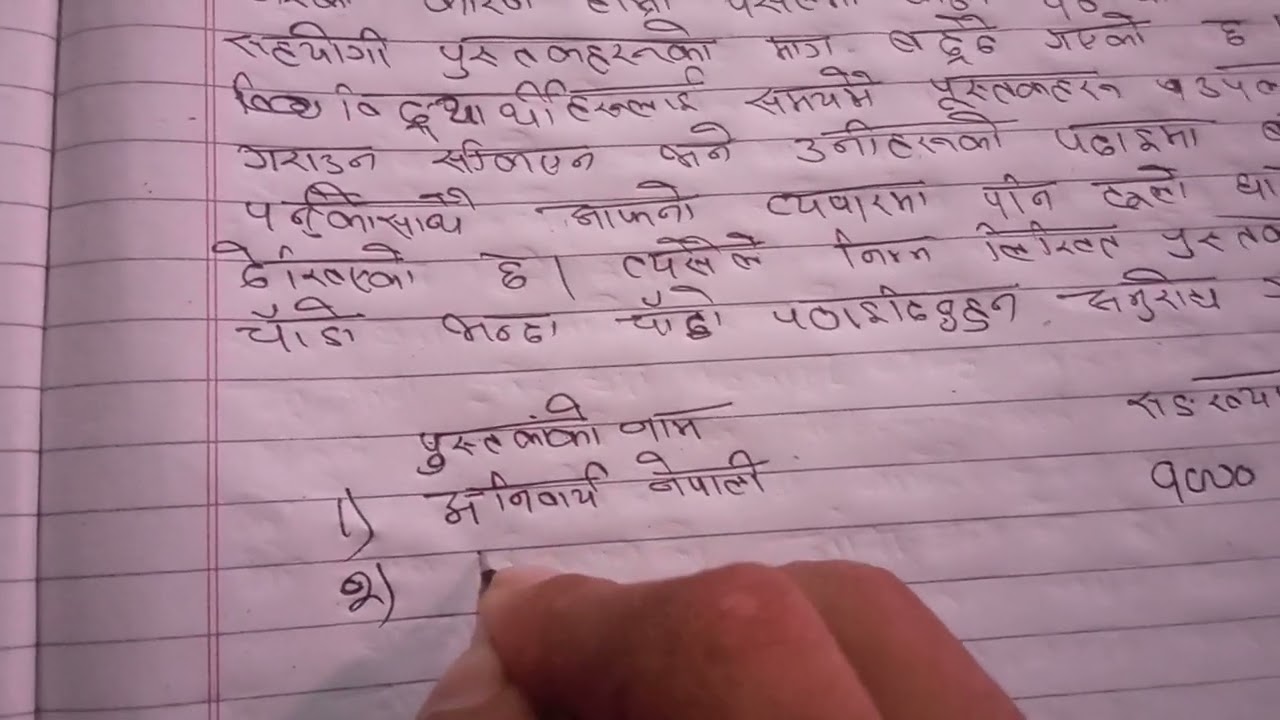 हाम्रो
सहयोगी पुस्तकहरूको माग बढ्दै गएको छ
विद्यार्थीहरूलाई समयमै पूस्तकहरू उपल
गराउन सकिएन भने उनीहरूको पढाइमा
पर्नुकासाथै आफ्नो व्यपारमा पनि ठूलो
देखिएको छ। त्यसैले निम्न लिखित पुस्तक
चाँडो भन्दा चाँडो पठाईदिनुहुन अनुरोध
पुस्तकंको नाम सङख्या
१) अनिवार्य नेपाली १०००
२)